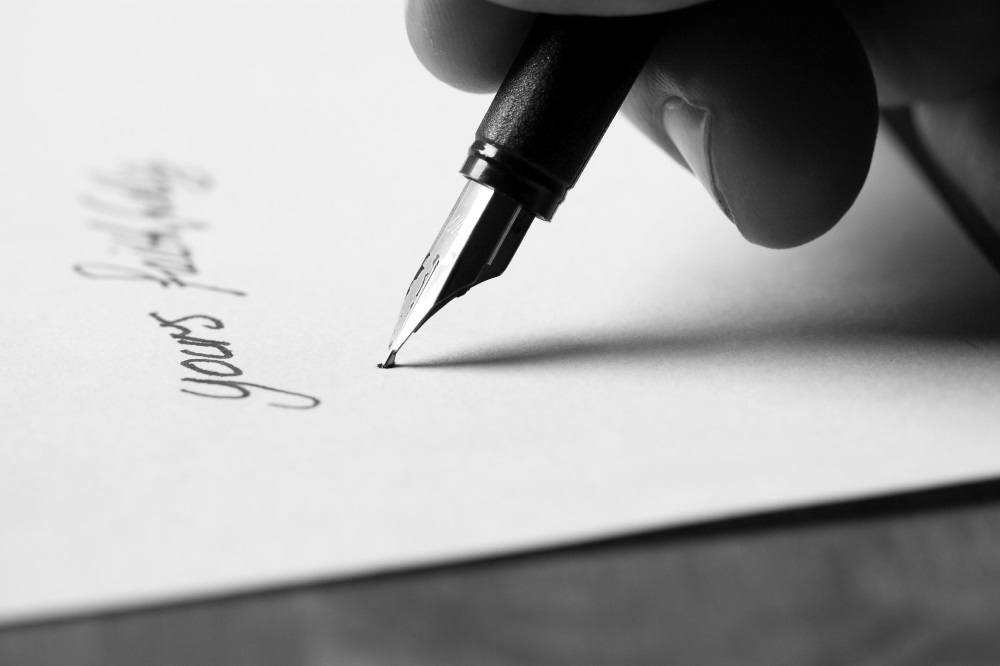 yours faithfully